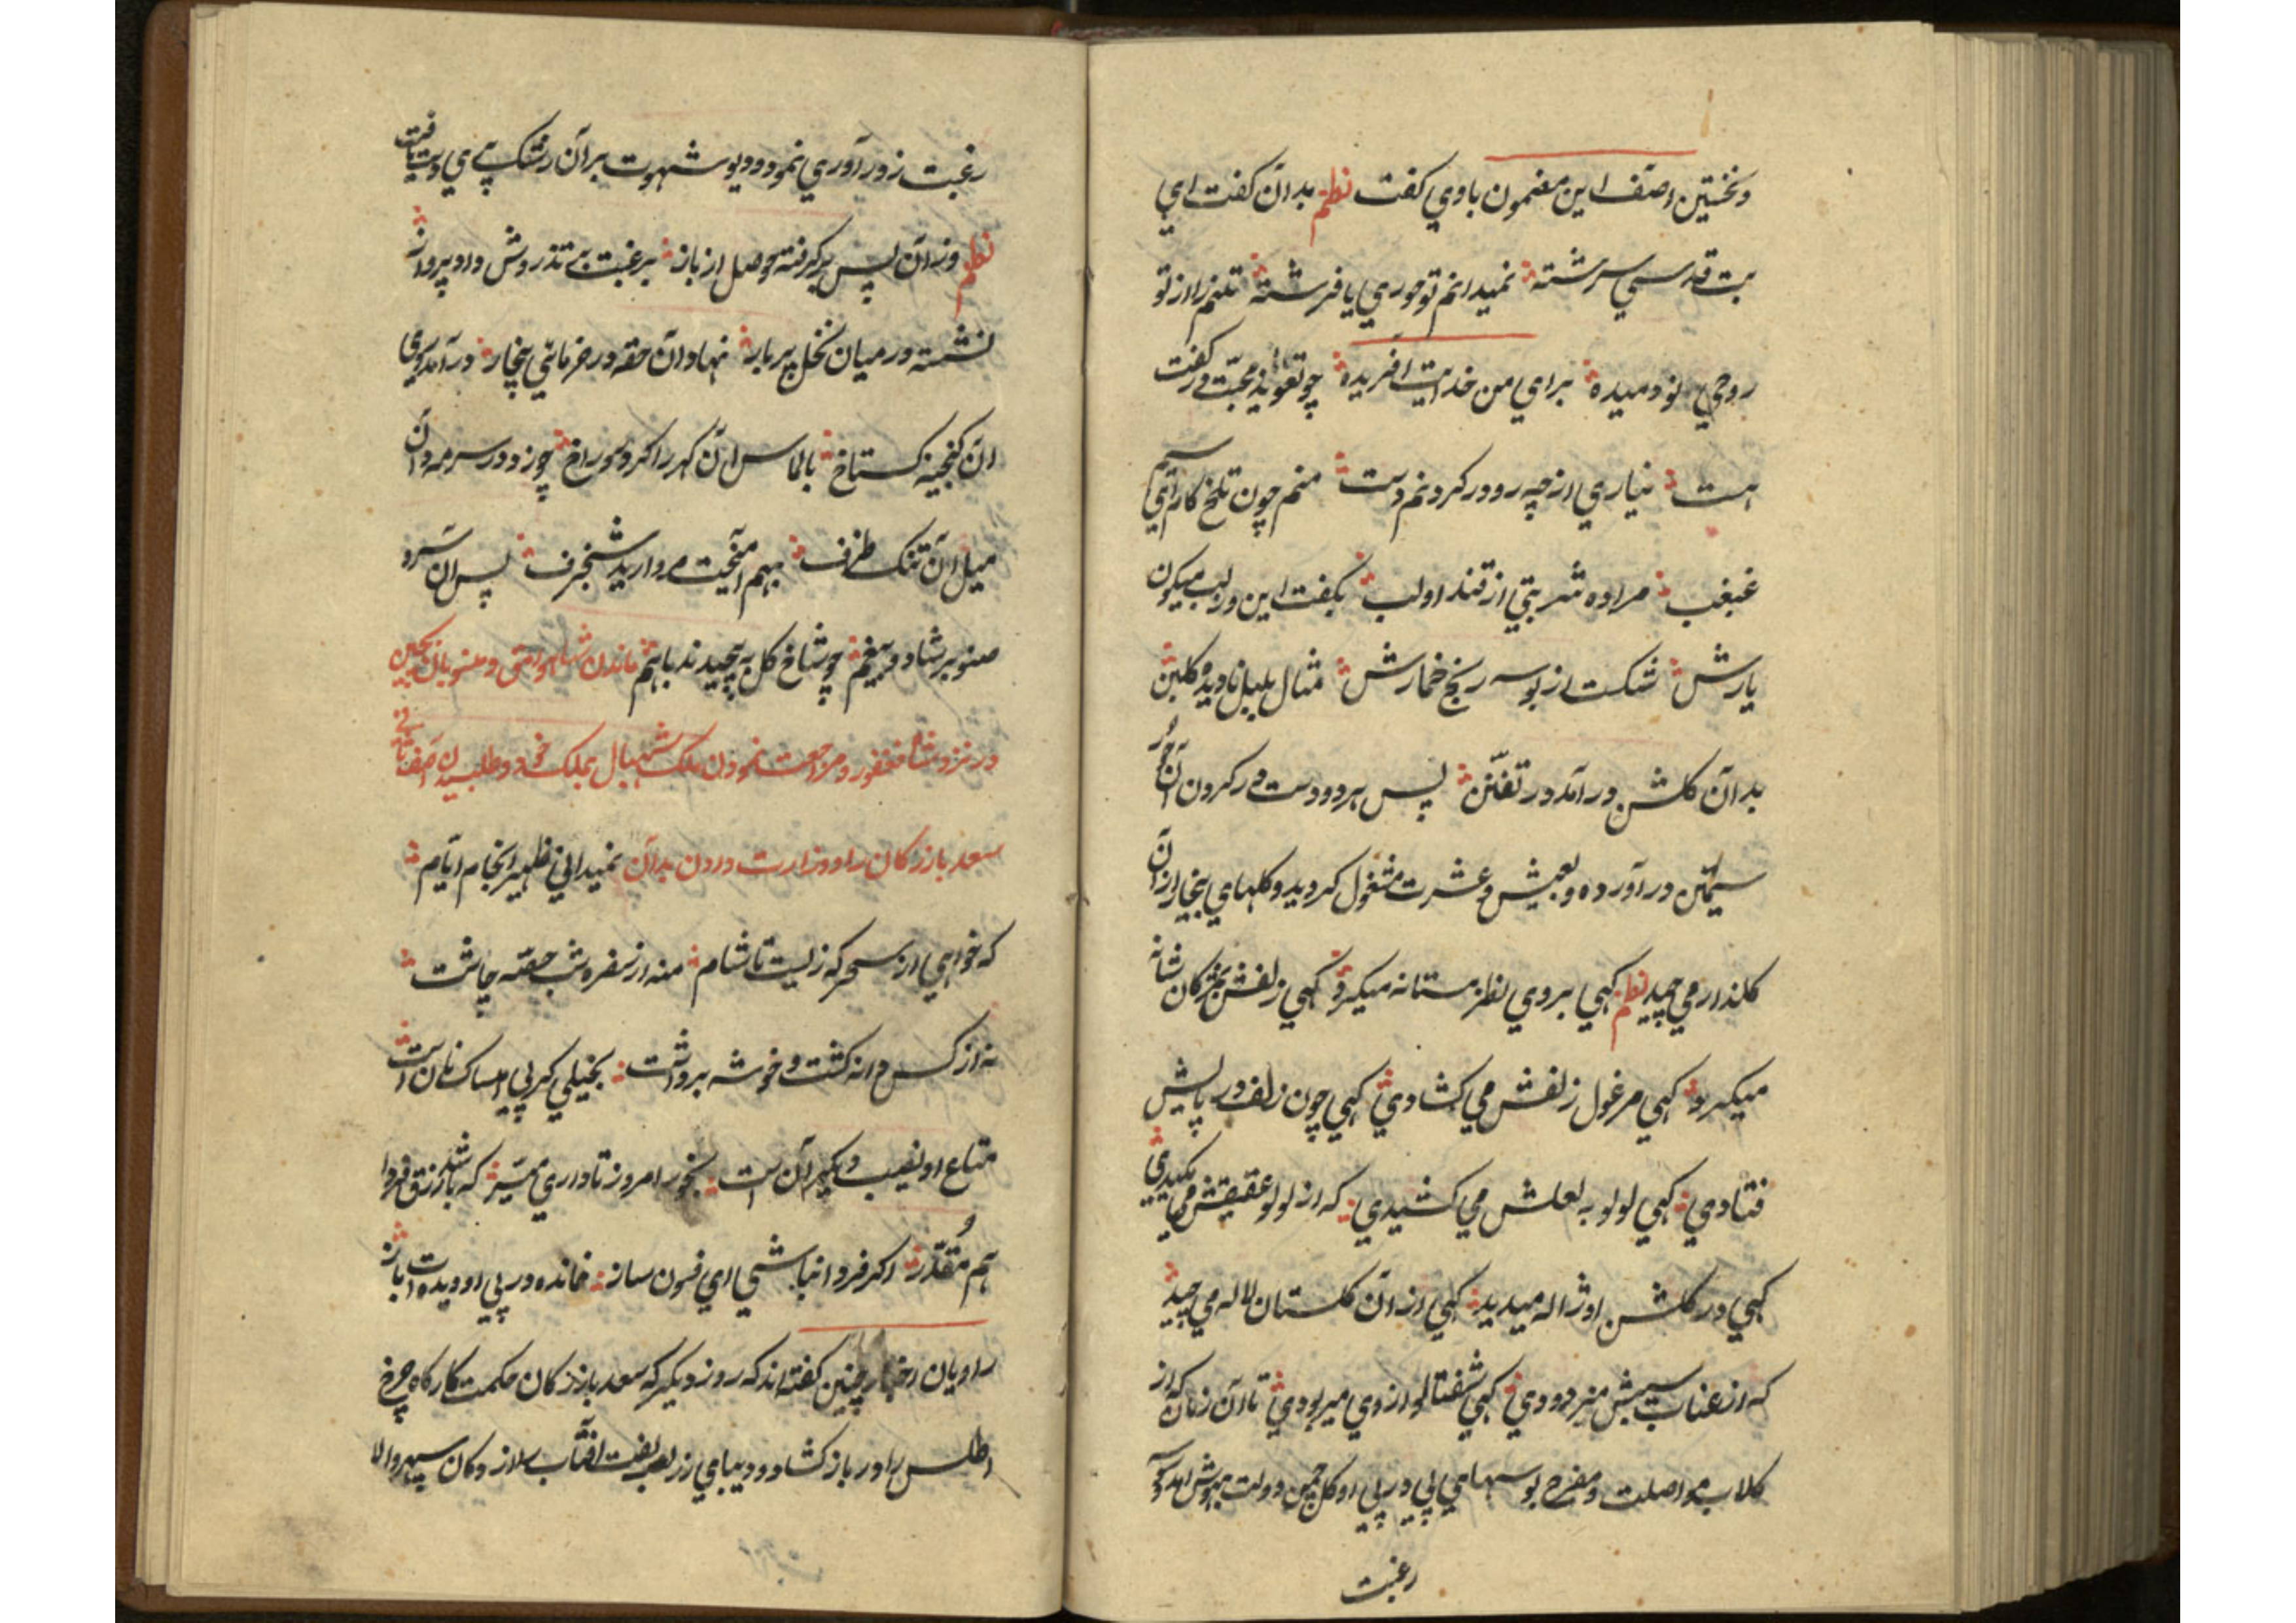 ونخستین آصف این مضمون باوی کفت نظم بدان کفت ای
بت قدسی سرشته نمیدانم تو حوری یا فرشته تنم را از تو
روحی نو دمیده برای من خدایت آفریده چو تعویذ محبت در کفت
هست نیاری از چه رو در کردنم دست منم چون تلخ کام ای سیم
غبغب مرا ده شربتی از قند او لب بکفت این و ز لب میکون
یارش شکست از بوسه رنج خمارش مثال بلبل نادیده کلبن
بدان کلشن درآمد در تفنن پس هر دو دست در کردن آن حور
سیمتن درآورده و بعیش و عشرت مشغول کردید و کلهای بیخار از آن
کلعذار می چید نظم کهی بروی نظر مستانه میکرد کهی زلفش بمژکان شانه
میکرد کهی مرغول زلفش می کشادی کهی چون زلف در پایش
فتادی کهی لولو به لعلش می کشیدی که از لولو عقیقش می مکیدی
کهی در کلشن او ژاله میدید کهی از آن کلستان لاله می چید
که از عناب سیبش میزدودی کهی شفتالو از وی میربودی تا آن زمان که از
کلاب مواصلت و مفرح بوسهای پی در پی او کل چمن دولت بهوش آمد
رغبت
رغبت زور آوری نمود و دیو شهوت بر آن رشک پری دست یافت
نظم وز آن پس برکرفته حوصل از باز برغبت بی تذروش داد پرواز
نشسته در میان نخل پربار نهاد آن حقه در خرمای بیخار درآمد بر روی
آن کنجینه کستاخ بالماس آن کهر را کرد سوراخ چو زد در سرمه دان
میل آن تنک ظرف بهم آمیخت مروارید شنجرف پس آن سرو
صنوبر شاد و بیغم چو شاخ کل به پیچیدند باهم ماندن شاه
در نزد شاه فغفور و مراجعت نمودن ملک شهبال بملک خود و طلبیدن آصف
سعد بازرکان را و وزارت دادن بدان نمیدانی ظهیر انجام ایام
که خواهی از سحرکه زیست تا شام منه از سفره شب حصه چاشت
نه از کس دانه کشت و خوشه برداشت بخیلی کر پی امساک نان است
متاع او نصیب دیکران است بخور امروز تا داری میسر که باشد رزق فردا
هم مقدر اکر فردا نباشی ای فسون ساز نمانده در پی او دیده ات باز
راویان اخبار چنین کفته اند که روز دیکر که سعد بازرکان حکمت کارکاه چرخ
اطلس را در باز کشاد و دیبای زربفت آفتاب را از دکان سپهر والا